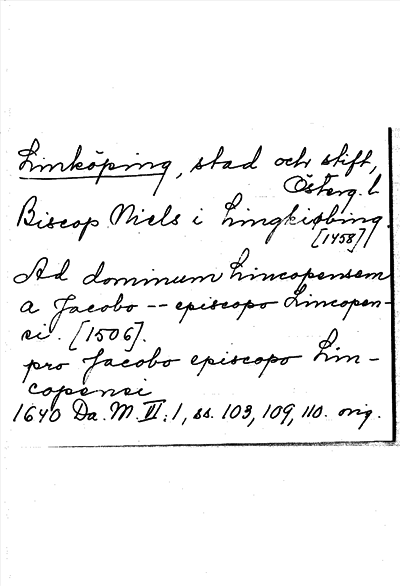 Linköping, stad och stift,
Österg. l
Biscop Niels i Lingkiøbing.
[1458]
Ad dominum Lincopensem
a Jacobo -- episcopo Lincopen-
si. [1506].
pro Jacobo episcopo Lin-
copensi
1640 Da. M. VI: 1, ss. 103, 109, 110. orig.